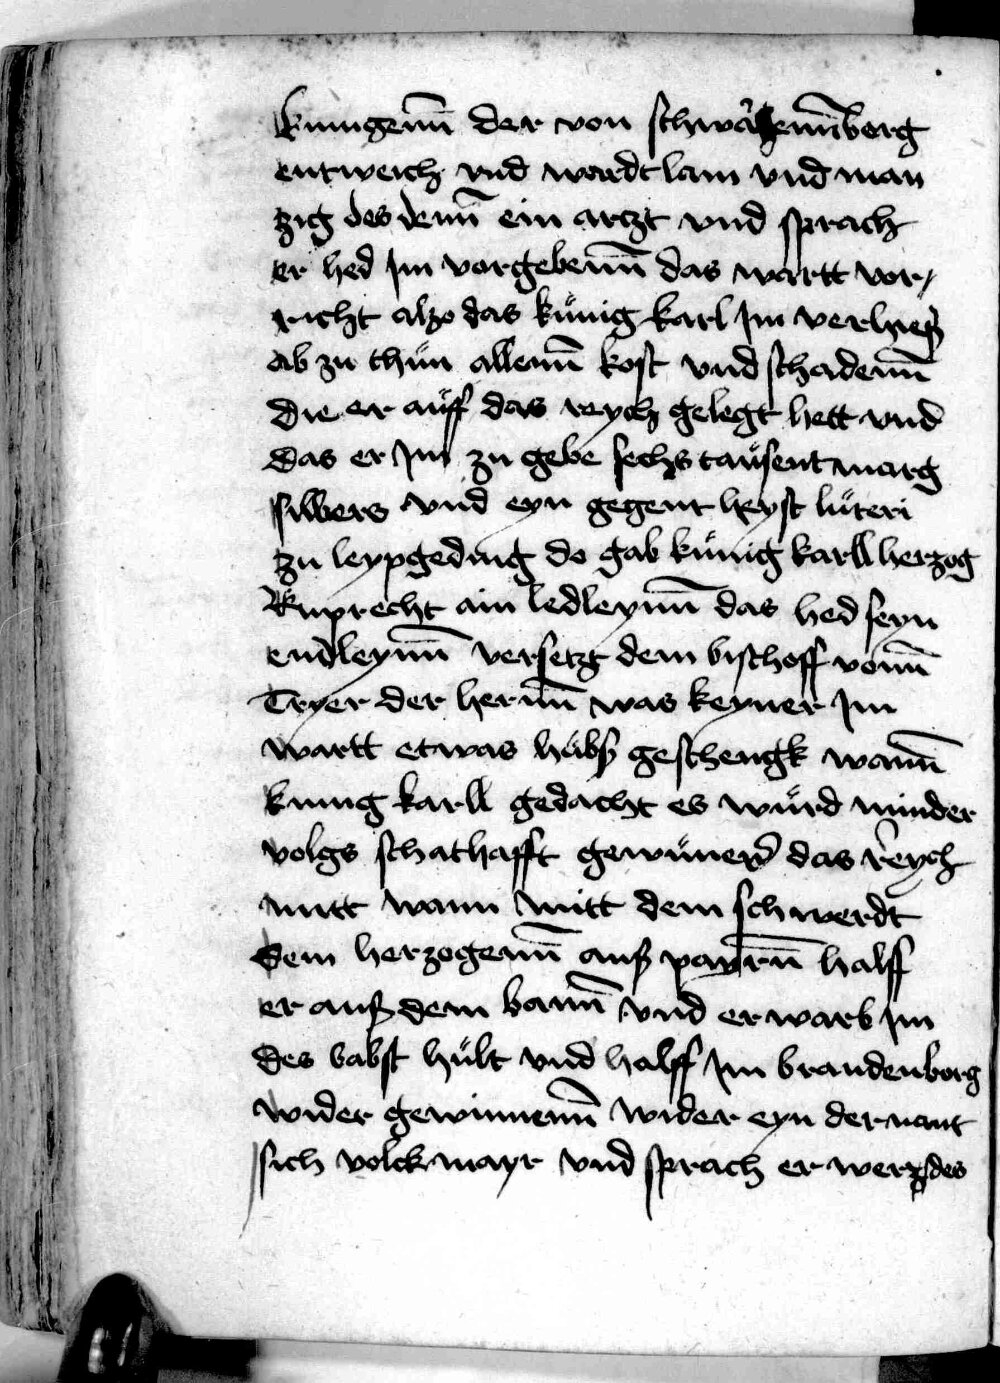 kunigenn der von schwarzennberg
entweich vnd wardt lam vnd man
zig des denn ein artzt vnd sprach
er hed Im vorgebenn das wartt vor/
richt alzo das künig karl Im verhieß
ab zu thün allenn kost vnd schadenn
die er aüff das reych gelegt hett vnd
das er Im zu gebe sechs taüsent marg
silbers vnd eyn gegent heyst lüteri
zu leypgeding do gab künig karll herzog
Ruprecht ain ledleynn das hed seyn
endleynn versetzt dem bischoff vonn
Tryer der hernn was keyner Im
wartt etwas hübß geschengk wann
kunig karll gedacht es würd minder
volgs schathafft gewünne das reych
mitt wann mitt dem schwerdt
dem herzogenn auß payrnn halff
er auß dem bann vnd erwarb Im
des babst hült vnd halff Im brandenborg
wider gewinnenn wider eyn der nant
sich volckmayr vnd sprach er wer des